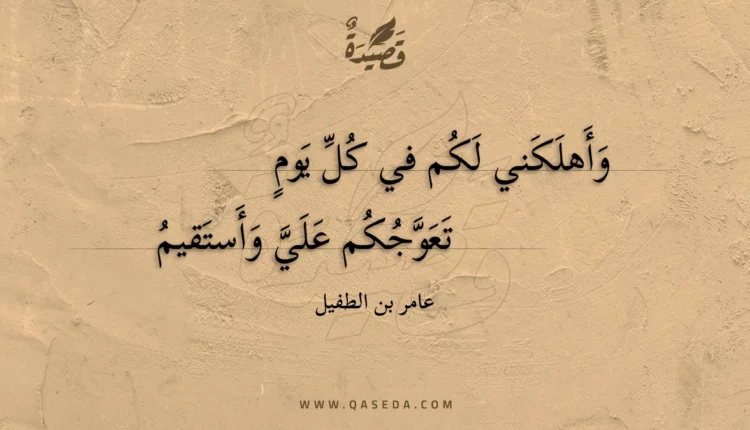 قَصِيْدَةٌ
وَأَهلَكَني لَكُم في كُلِّ يَومٍ
تَعَوَّجُكُم عَلَيَّ وَأَستَقيمُ
عامر بن الطفيل
WWW.QASEDA.COM